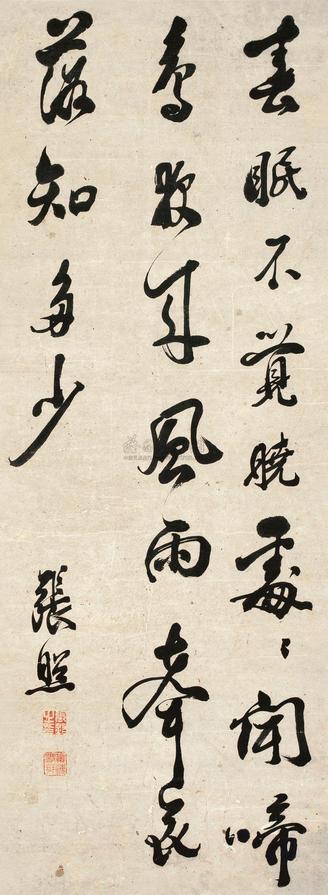 春眠不覺曉處〻聞啼
鳥夜來風雨聲花
落知多少
張照